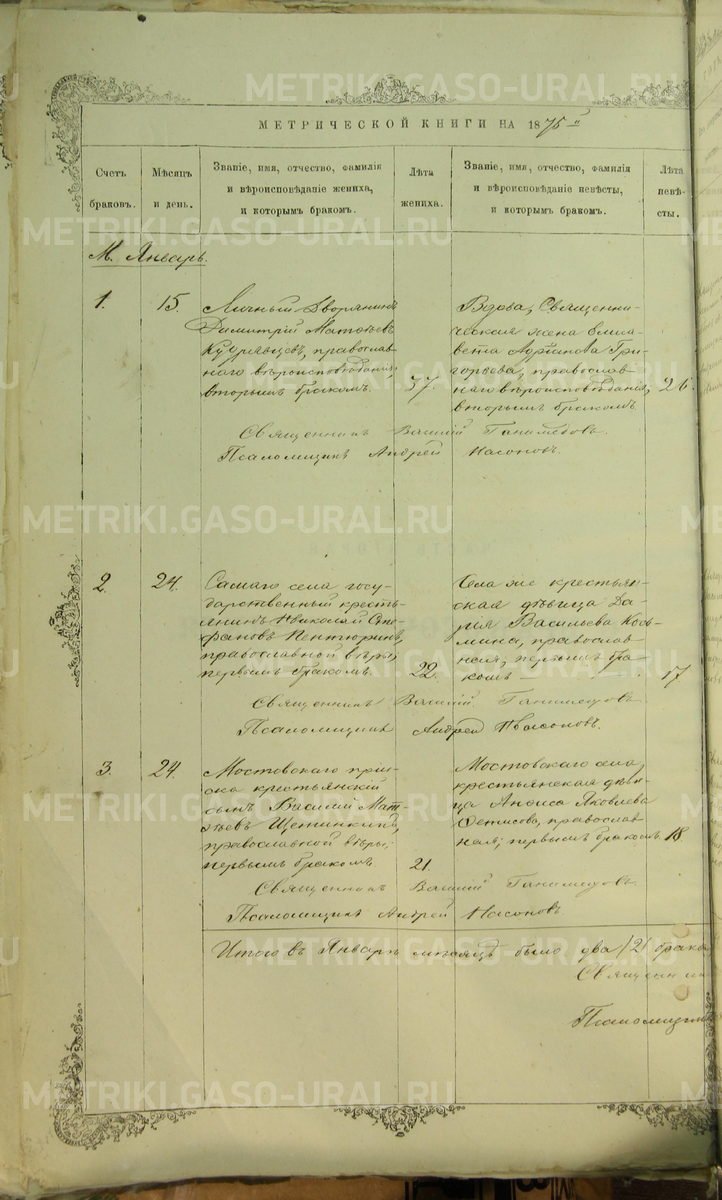 МЕТРИЧЕСКОЙ КНИГИ НА 1875 й
Счетъ браковъ.
Мѣсяцъ и день.
Званіе, имя, отчество, фамилія
и вѣроисповѣданіе жениха,
и которымъ бракомъ.
Лѣта жениха.
Званіе, имя, отчество, фамилія
и вѣроисповѣданіе невѣсты,
и которымъ бракомъ.
Лѣта невѣ-
сты.
М. Январь.
1.
15.
Личный Дворянинъ
Димитрій Матвѣевъ
Кудрявцевъ, православ-
наго вѣроисповѣданія,
вторымъ бракомъ.
37.
Вдова, Священни-
ческая жена Елиза-
вета Адріанова Гри-
горьева, православ-
наго вѣроисповѣданія,
вторымъ бракомъ
26.
Священникъ Василій Ганимедовъ.
Псаломщикъ Андрей Насоновъ.
2.
24.
Самаго села госу-
дарственный кресть-
янинъ Николай Сте-
фановъ Пентюринъ,
православной вѣры,
первымъ бракомъ.
22.
Села же крестьян-
ская дѣвица Да-
рія Васильева Кось-
мина, православ-
ная, первымъ бра-
комъ
17
Священникъ Василій Ганимедовъ
Псаломщикъ Андрей Насоновъ.
3.
24.
Мостовскаго прии-
ска крестьянскій
сынъ Василій Мат-
вѣевъ Щетинкинъ,
православной вѣры,
первымъ бракомъ
21.
Мостовскаго села,
крестьянская дѣви-
ца Аниса Яковлева
Денисова, православ-
ная, первымъ бракомъ
18.
Священникъ Василій Ганимедовъ.
Псаломщикъ Андрей Насоновъ
Итого въ Январѣ мѣсяцѣ было два /2/ брака
Священни
Псаломщик
METRIKI.GASO-URAL.RU